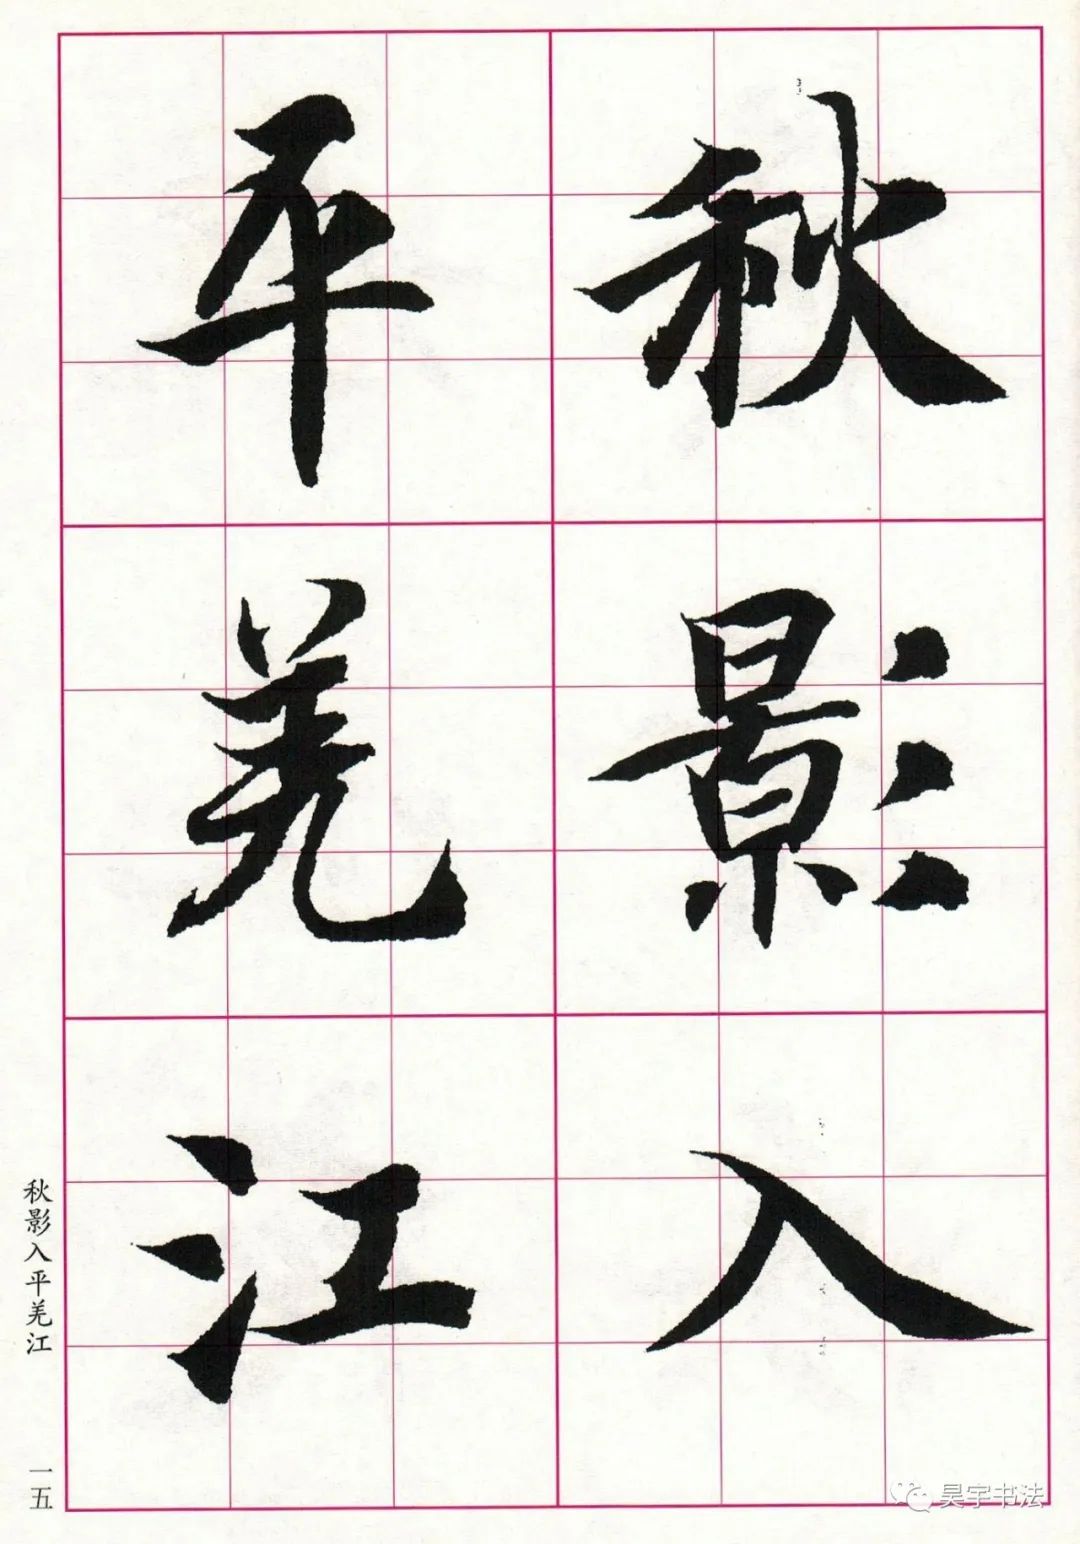 秋影入
平羌江
秋影入平羌江
一五
昊宇书法